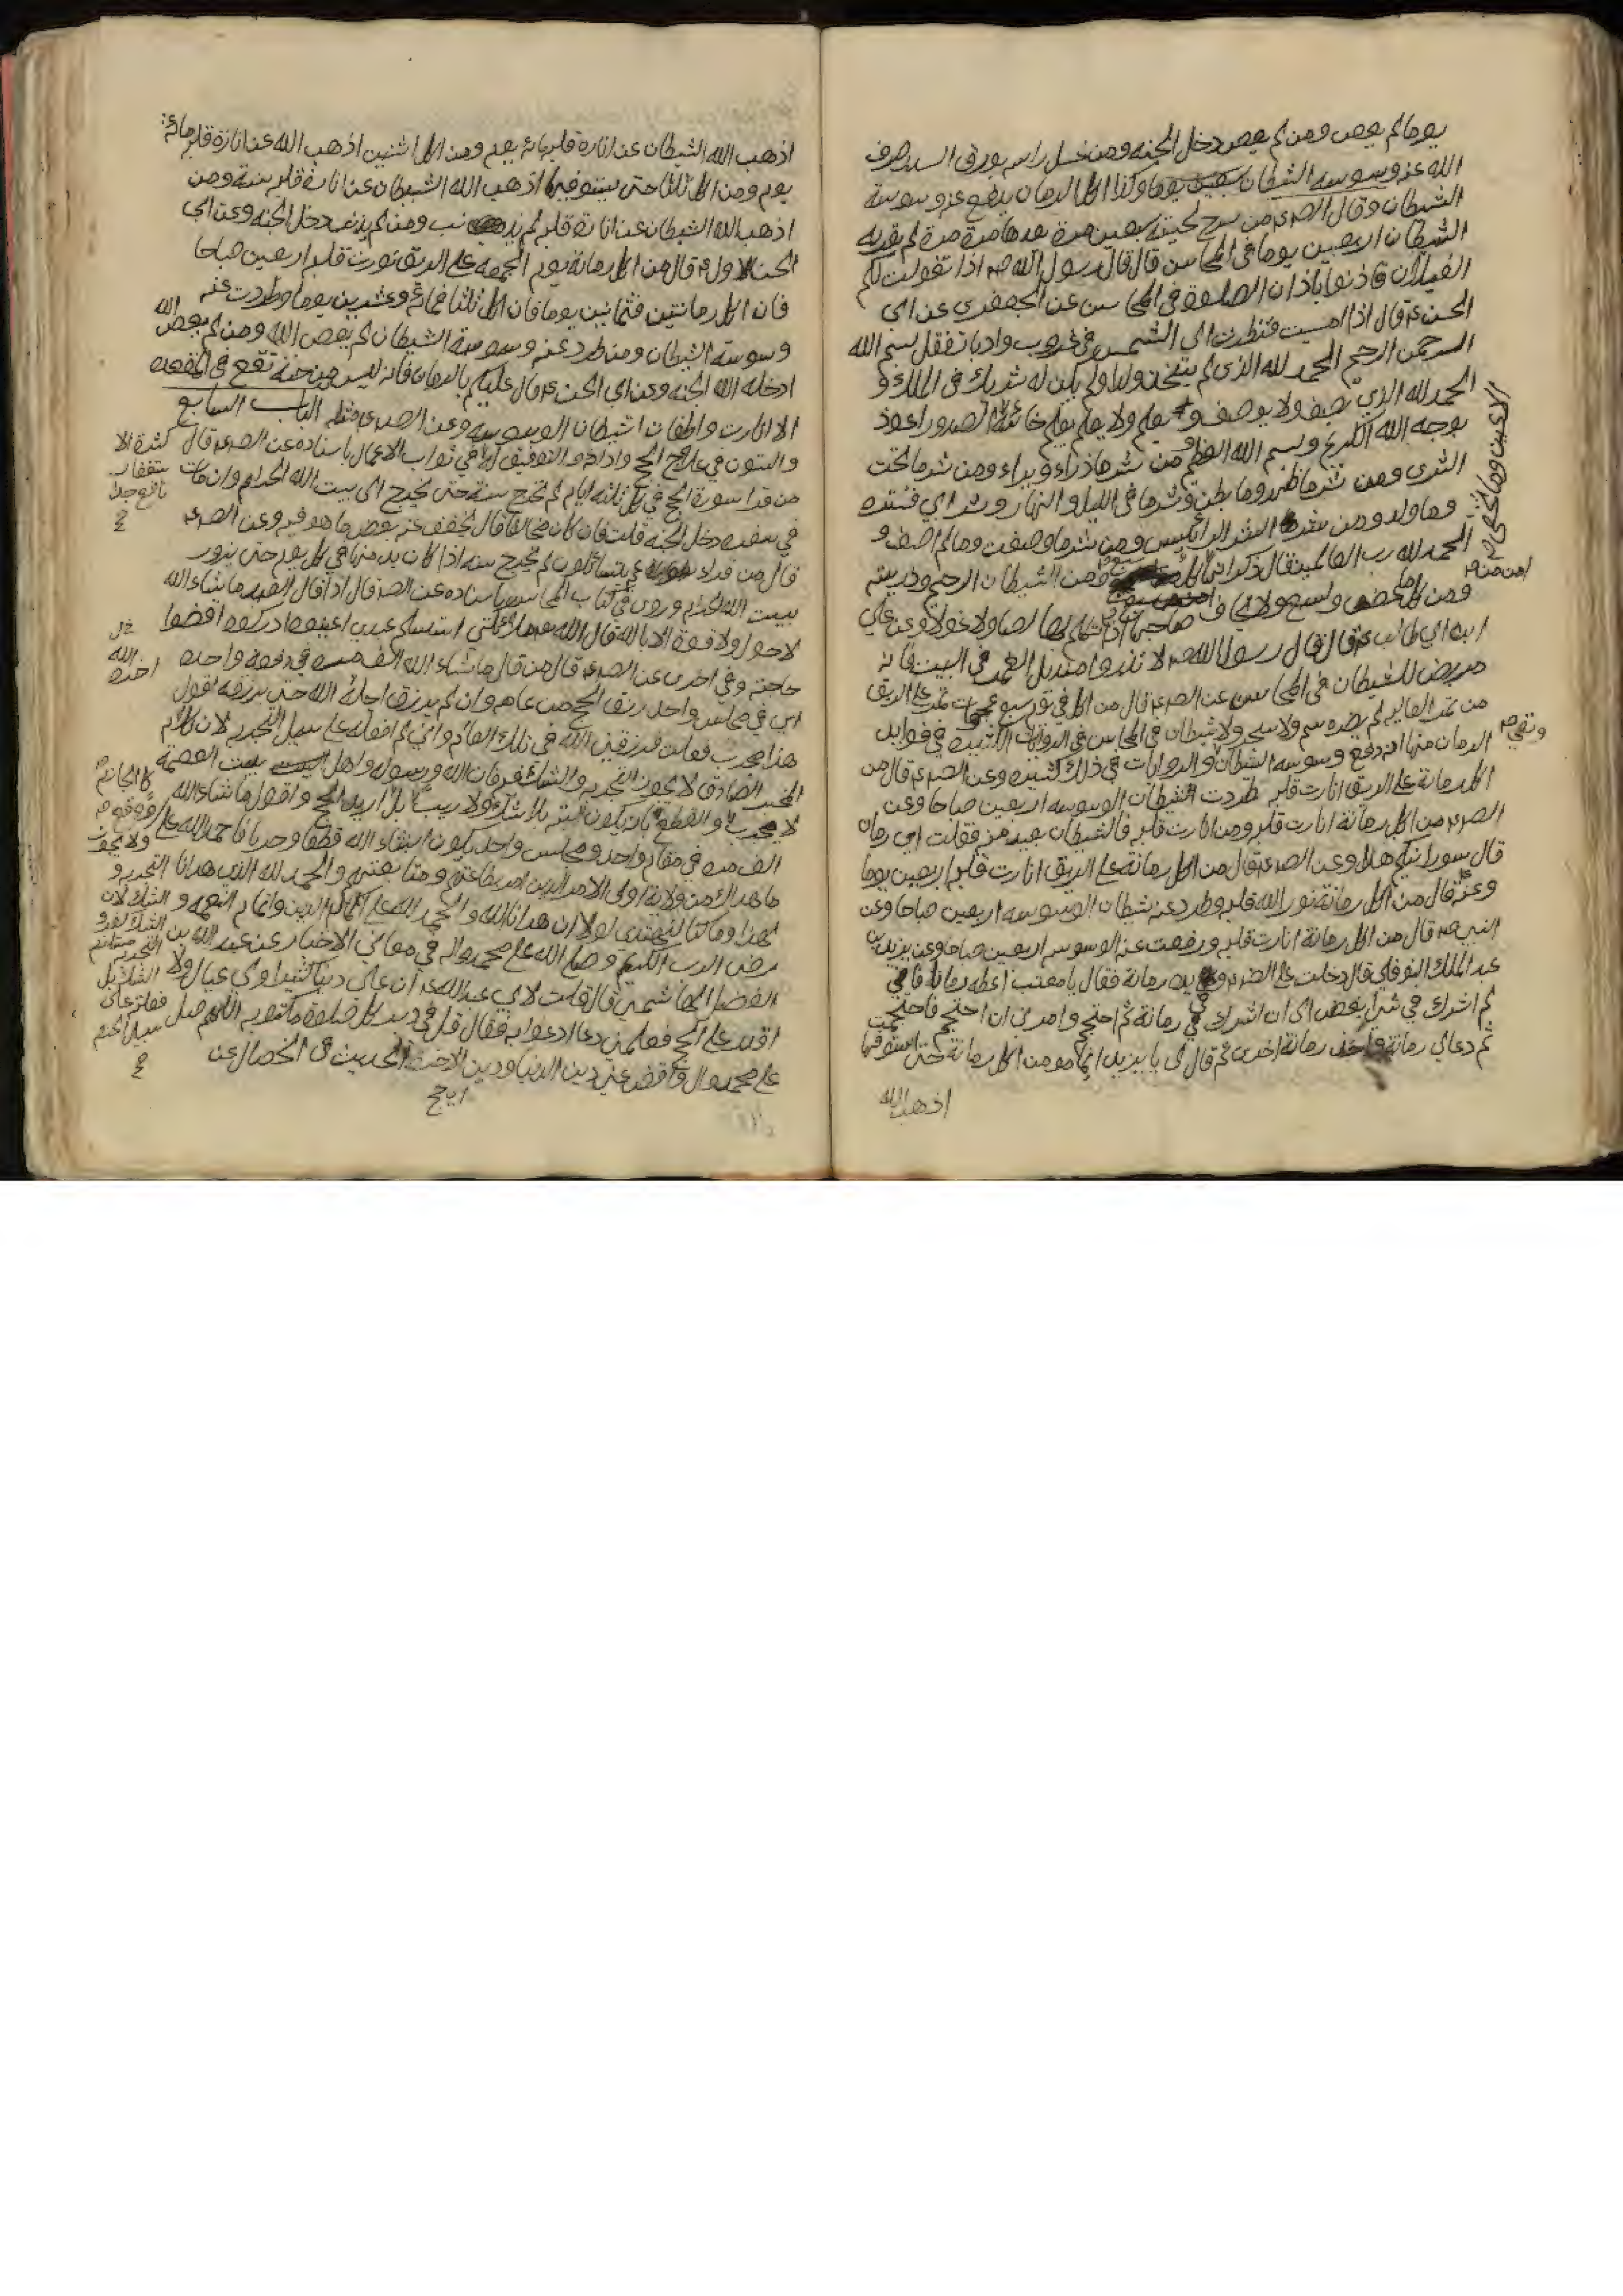 يوما لم يعص ومن لم يعص دخل الجنه ومن غسل راسه بورق السدر صرف
الله عنه وسوسه الشيطان سبعين يوما وكذا اكل الرمان يدفع عنه وسوسة
الشيطان وقال الصـ ع من سرح لحيته سبعين مرة يعدها مرة مرة لم يقربه
الشيطان اربعين يوما في المحاسن قال قال رسول الله صـ اذا تغولت لكم
الغيلان فاذنوا باذان الصلوة في المحاسن عن الجعفري عن ابى
الحسن ع قال اذا امسيت فنظرت الى الشمس في غروب وادبار فقل بسم الله
الرحمن الرحيم الحمد لله الذى لم يتخذ ولدا ولم يكن له شريك في الملك و
الحمد لله الذي يصف ولا يوصف و يعلم ولا يعلم يعلم خائنة الاعين وما تخفى الصدور اعوذ
بوجه الله الكريم وبسم الله العظيم من شر ما ذراء وبراء ومن شر ما تحت
الثرى ومن شر ما ظهر وما بطن وشر ما في الليل والنهار وشر ابي قتره
وما ولد ومن شر الرسيس ومن شر ما وصفت وما لم اصف و
الحمد لله رب العالمين قال ذكر انها امن من كل سبع ومن الشيطان الرجيم وذريته
ومن كل ما عض ولسع ولا يخاف صاحبها اذا تكلم بها لصا ولا غولا وعن علي
ابن ابي طالب ع قال قال رسول الله صـ لا تذروا منديل الغمر في البيت فانه
مربض للشيطان في المحاسن عن الصـ ع قال من اكل في يوم سبع عجوات تمر على الريق
من تمر العاليه لم يضره سم ولا سحر ولا شيطان في المحاسن في الروايات الكثيره في فوايد
الرمان منها انه دفع وسوسه الشيطان والروايات في ذلك كثيره وعن الصـ ع قال من
اكل رمانة على الريق انارت قلبه طردت الشيطان الوسوسه اربعين صباحا وعن
الصـ ع من اكل رمانة انارت قلبه ومن انارت قلبه فالشيطان بعيد منه فقلت اي رمان
قال سورانيكم هذا وعن الصـ ع قال من اكل رمانة على الريق انارت قلبه اربعين يوما
وعنه قال من اكل رمانة نور الله قلبه وطرد عنه شيطان الوسوسه اربعين صباحا وعن
النبى صـ قال من اكل رمانة انارت قلبه ورفعت عنه الوسوسه اربعين صباحا وعن يزيد بن
عبد الملك النوفلي قال دخلت على الصـ ع وفي يده رمانة فقال يا معتب اعطه رمانة فاني
لم اشرك في شئ ابغض الى ان اشرك في رمانة ثم احتجم وامرني ان احتجم فاحتجمت
ثم دعا لي رمانة واخذ رمانة اخرى ثم قال لى يا يزيد ايما مومن اكل رمانة حتى استوفيها
اذهب الله
اذهب الله الشيطان عن انارة قلبه مائة يوم ومن اكل اثنتين اذهب الله عن انارة قلبه مائة
يوم ومن اكل ثلثا حتى يستوفيها اذهب الله الشيطان عن انارة قلبه سنة ومن
اذهب الله الشيطان عن انارة قلبه لم يذنب ومن لم يذنب دخل الجنه وعن ابى
الحسن الاول ع قال من اكل رمانة يوم الجمعه على الريق نورت قلبه اربعين صباحا
فان اكل رمانتين فثمانين يوما فان اكل ثلثا فمائة وعشرين يوما وطردت عنه
وسوسة الشيطان ومن طرد عنه وسوسة الشيطان لم يعص الله ومن لم يعص الله
ادخله الله الجنه وعن ابي الحسن ع قال عليكم بالرمان فانه ليس من حبة تقع في المعده
الا انارت واطفات شيطان الوسوسه وعن الصـ ع مثله الباب السابع
والستون في علاج الحج واداؤه والتوفيق له في ثواب الاعمال باسناده عن الصـ ع قال
من قرا سورة الحج في كل ثلثه ايام لم تخرج سنة حتى يخرج الى بيت الله الحرام وان مات
في سفره دخل الجنه قلت فان كان مخالفا قال يخفف عنه بعض ما هو فيه وعن الصـ ع
قال من قراء عم يتسائلون لم يخرج سنه اذا كان يدمنها في كل يوم حتى يزور
بيت الله الحرام وروى في كتاب المحاسن باسناده عن الصـ قال اذا قال العبد ما شاء الله
لا حول ولا قوة الا بالله قال الله ملائكتى استسلم عبدى اعينوه ادركوه اقضوا
حاجته وفي اخرى عن الصـ ع قال من قال ما شاء الله الف مره في دفعة واحده
اى في مجلس واحد رزق الحج من عامه وان لم يرزق اجله الله حتى يرزقه اقول
هذا مجرب فعلت فرزقني الله في ذلك العام واني لم افعله على سبيل التجربه لان كلام
المخبر الصادق لا يجوز التجربه والشك فيه فان الله ورسوله واهل بيت العصمة
لا يجرب والقطع بان يكون البته بلا شك ولا ريب بل اريد الحج واقول ما شاء الله
الف مره في مقام واحد ومجلس واحد يكون انشاء الله قطعا وجربا فاحمد الله على
ما هداك من ولاية اولى الامر الذين امر بطاعتهم ومتابعتهم والحمد لله الذى هدانا
لهذا وما كنا لنهتدى لولا ان هدانا الله والحمد لله على اكمال الدين واتمام النعمه و
رضى الرب الكريم وصلى الله على محمد واله في معاني الاخبار عن عبد الله بن
الفضل الهاشمي قال قلت لابي عبد الله ع ان علي دينا كثيرا ولي عيال ولا
اقدر على الحج فعلمني دعا ادعوا به فقال قل في دبر كل صلوة مكتوبه اللهم صل
على محمد وال واقض عني دين الدنيا ودين الاخرة الحديث في الخصال عن